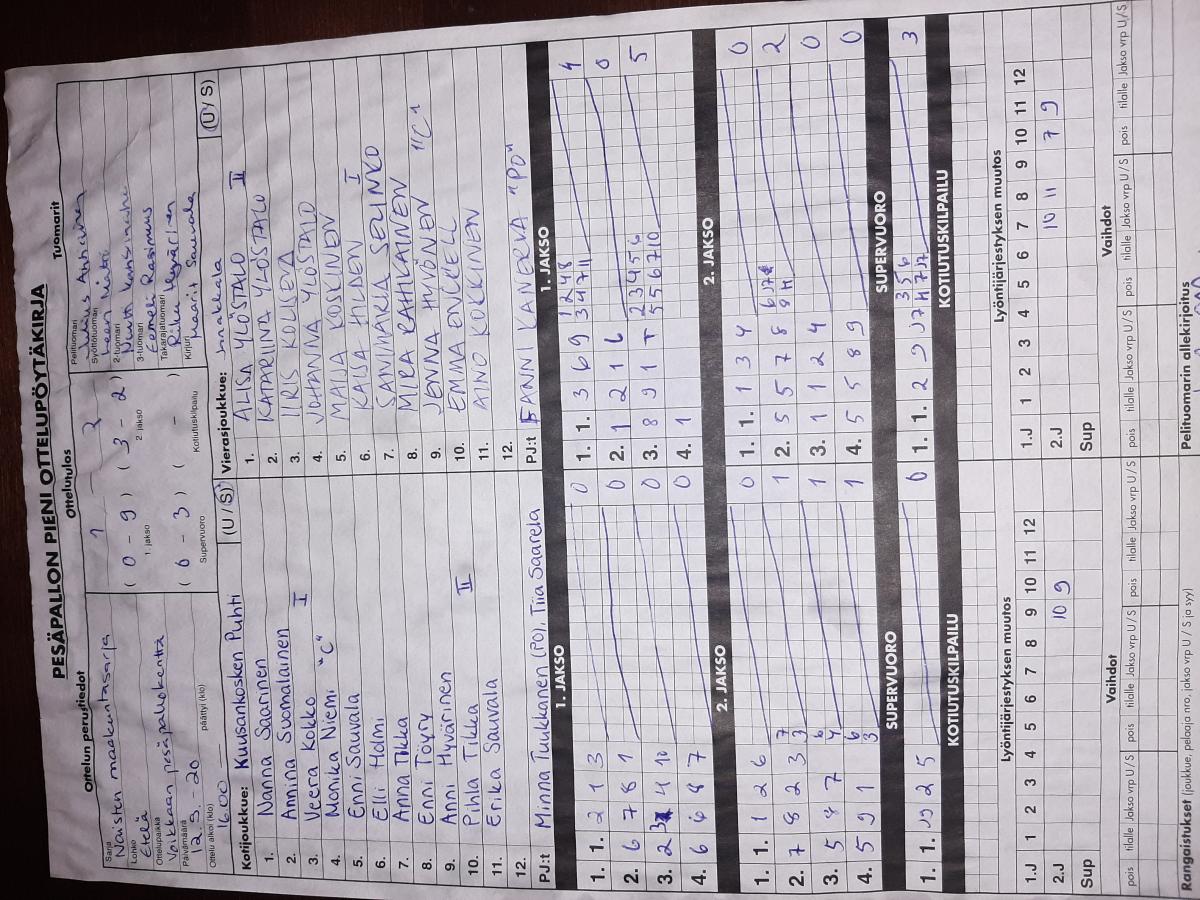 PESÄPALLON PIENI OTTELUPÖYTÄKIRJA
Ottelun perustiedot
Sarja
Naisten maakuntasarja
Lohko
Etelä
Ottelupaikka
Voikkaan pesäpallokenttä
Päivämäärä
12.9.-20
Ottelu alkoi (klo)
16.00
päättyi (klo)
Ottelutulos
1 2
(0 - 9) (3 - 2)
1. jakso 2. jakso
(0 - 3) ( - )
Supervuoro Kotiutuskilpailu
Tuomarit
Pelituomari
Syöttötuomari
2-tuomari
3-tuomari
Eemeli Rasimus
Takarajatuomari
Riku Hyvärinen
Kirjuri
Maarit Sauvala
Kotijoukkue: Kuusankosken Puhti (U / S)
1. Nanna Saarinen
2. Anniina Suomalainen
3. Veera Kokko I
4. Monika Niemi "C"
5. Enni Sauvala
6. Elli Holmi
7. Anna Tikka
8. Enni Töyry
9. Anni Hyvärinen
10. Pihla Tikka II
11. Erika Sauvala
12.
PJ:t Minna Tuukkanen (PO), Tiia Saarela
Vierasjoukkue: (U / S)
1. ALISA YLÖSTALO II
2. KATARIINA YLÖSTALO
3. IIRIS KOLISEVA
4. JOHANNA YLÖSTALO
5. MAIJA KOSKINEN
6. KAISA HILDEN I
7. SANNIMARIA SELINKO
8. MIRA RAHIKAINEN
9. JENNA HYVÖNEN "C"
10. EMMA ENCKELL
11. AINO KOKKINEN
12.
PJ:t FANNI KANERVA "PO"
1. JAKSO
1. 1. 2 1 3 0
2. 6 7 8 1 0
3. 2 3 4 10 0
4. 6 6 8 7 0
2. JAKSO
1. 1. 1 2 6 0
2. 7 8 2 3 7 3 1
3. 5 8 7 6 4 1
4. 5 9 1 6 3 1
SUPERVUORO
1. 1. J9 2 5 0
KOTIUTUSKILPAILU
1. JAKSO
1. 1. 3 6 9 1 2 4 8 3 4 7 11 4
2. 1 2 1 6 0
3. 8 9 1 T 2 3 4 5 6 5 5 6 7 10 5
4. 1
2. JAKSO
1. 1. 1 3 4 0
2. 5 5 7 8 2
3. 1 1 2 4 0
4. 5 5 8 9 0
SUPERVUORO
1. 1. 2 9 3 5 6 3
KOTIUTUSKILPAILU
Lyöntijärjestyksen muutos
1.J 1 2 3 4 5 6 7 8 9 10 11 12
2.J 10 9
Sup
Vaihdot
pois tilalle Jakso vrp U / S pois tilalle Jakso vrp U / S pois tilalle Jakso vrp U / S
Lyöntijärjestyksen muutos
1.J 1 2 3 4 5 6 7 8 9 10 11 12
2.J 10 11 7 9
Sup
Vaihdot
pois tilalle Jakso vrp U / S pois tilalle Jakso vrp U / S pois tilalle Jakso vrp U / S
Rangaistukset (joukkue, pelaaja nro, jakso vrp U / S ja syy)
Pelituomarin allekirjoitus